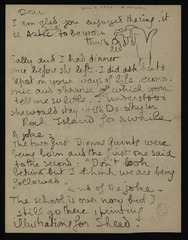 Dear
I am glad you enjoyed hearing it
is safe to be worn
thus
Sally and I had dinner
before she left. I did ask
your ways of life, econo-
mic and otherwise of which you
tell me so little. I understood
she would stay with Du. why in
Rod. Island for a while
A joke:
The two first Dionne Quints were
being born and the first one said
to the second: "Don't look
behind but I think we are being
followed."
End of the joke.
The school is over now but I
still go there, printing
illustrations for Sheed.